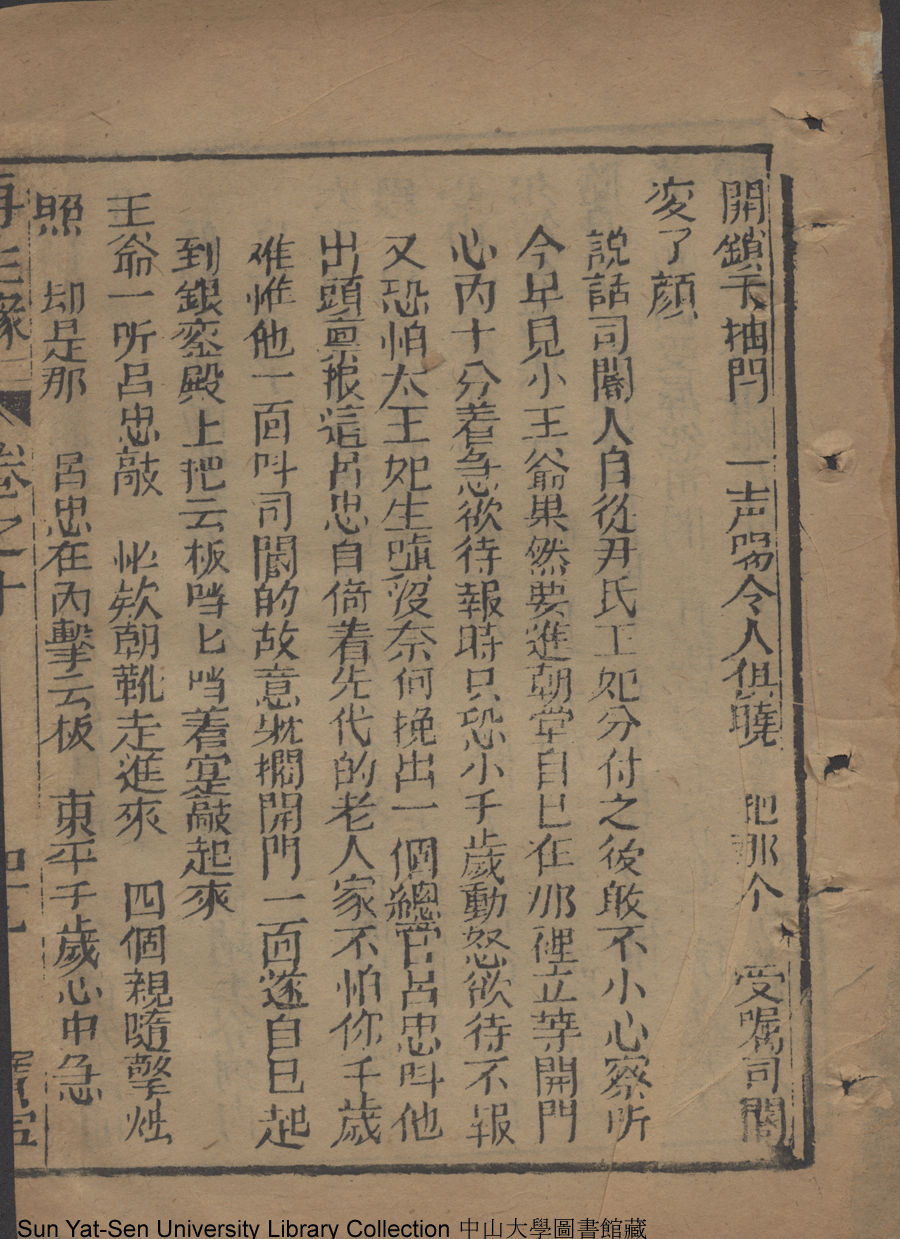 開鎖手抽閂　一声响令人俱曉　把那个　受嘱司閽
変了顔
説話司閽人自從尹氏王妃分付之後敢不小心察听
今早見小王爺果然要進朝堂自已在那裡立等開門
心内十分着急欲待報時只恐小千歲動怒欲待不報
又恐怕太王妃生嗔没奈何挽出一個總官吕忠呌他
出頭禀报這吕忠自倚着先代的老人家不怕你千歲
难惟他一面呌司閽的故意躭擱開門一面遂自巳起
到銀銮殿上把云板噹匕噹着寔敲起來
王爺一听吕忠敲　忙欵朝靴走進來　四個親隨擎燭
照　却是那　吕忠在内擊云板　東平千歲心中急
再生緣　卷之十　寶寧
Sun Yat-Sen University Library Collection 中山大學圖書館藏